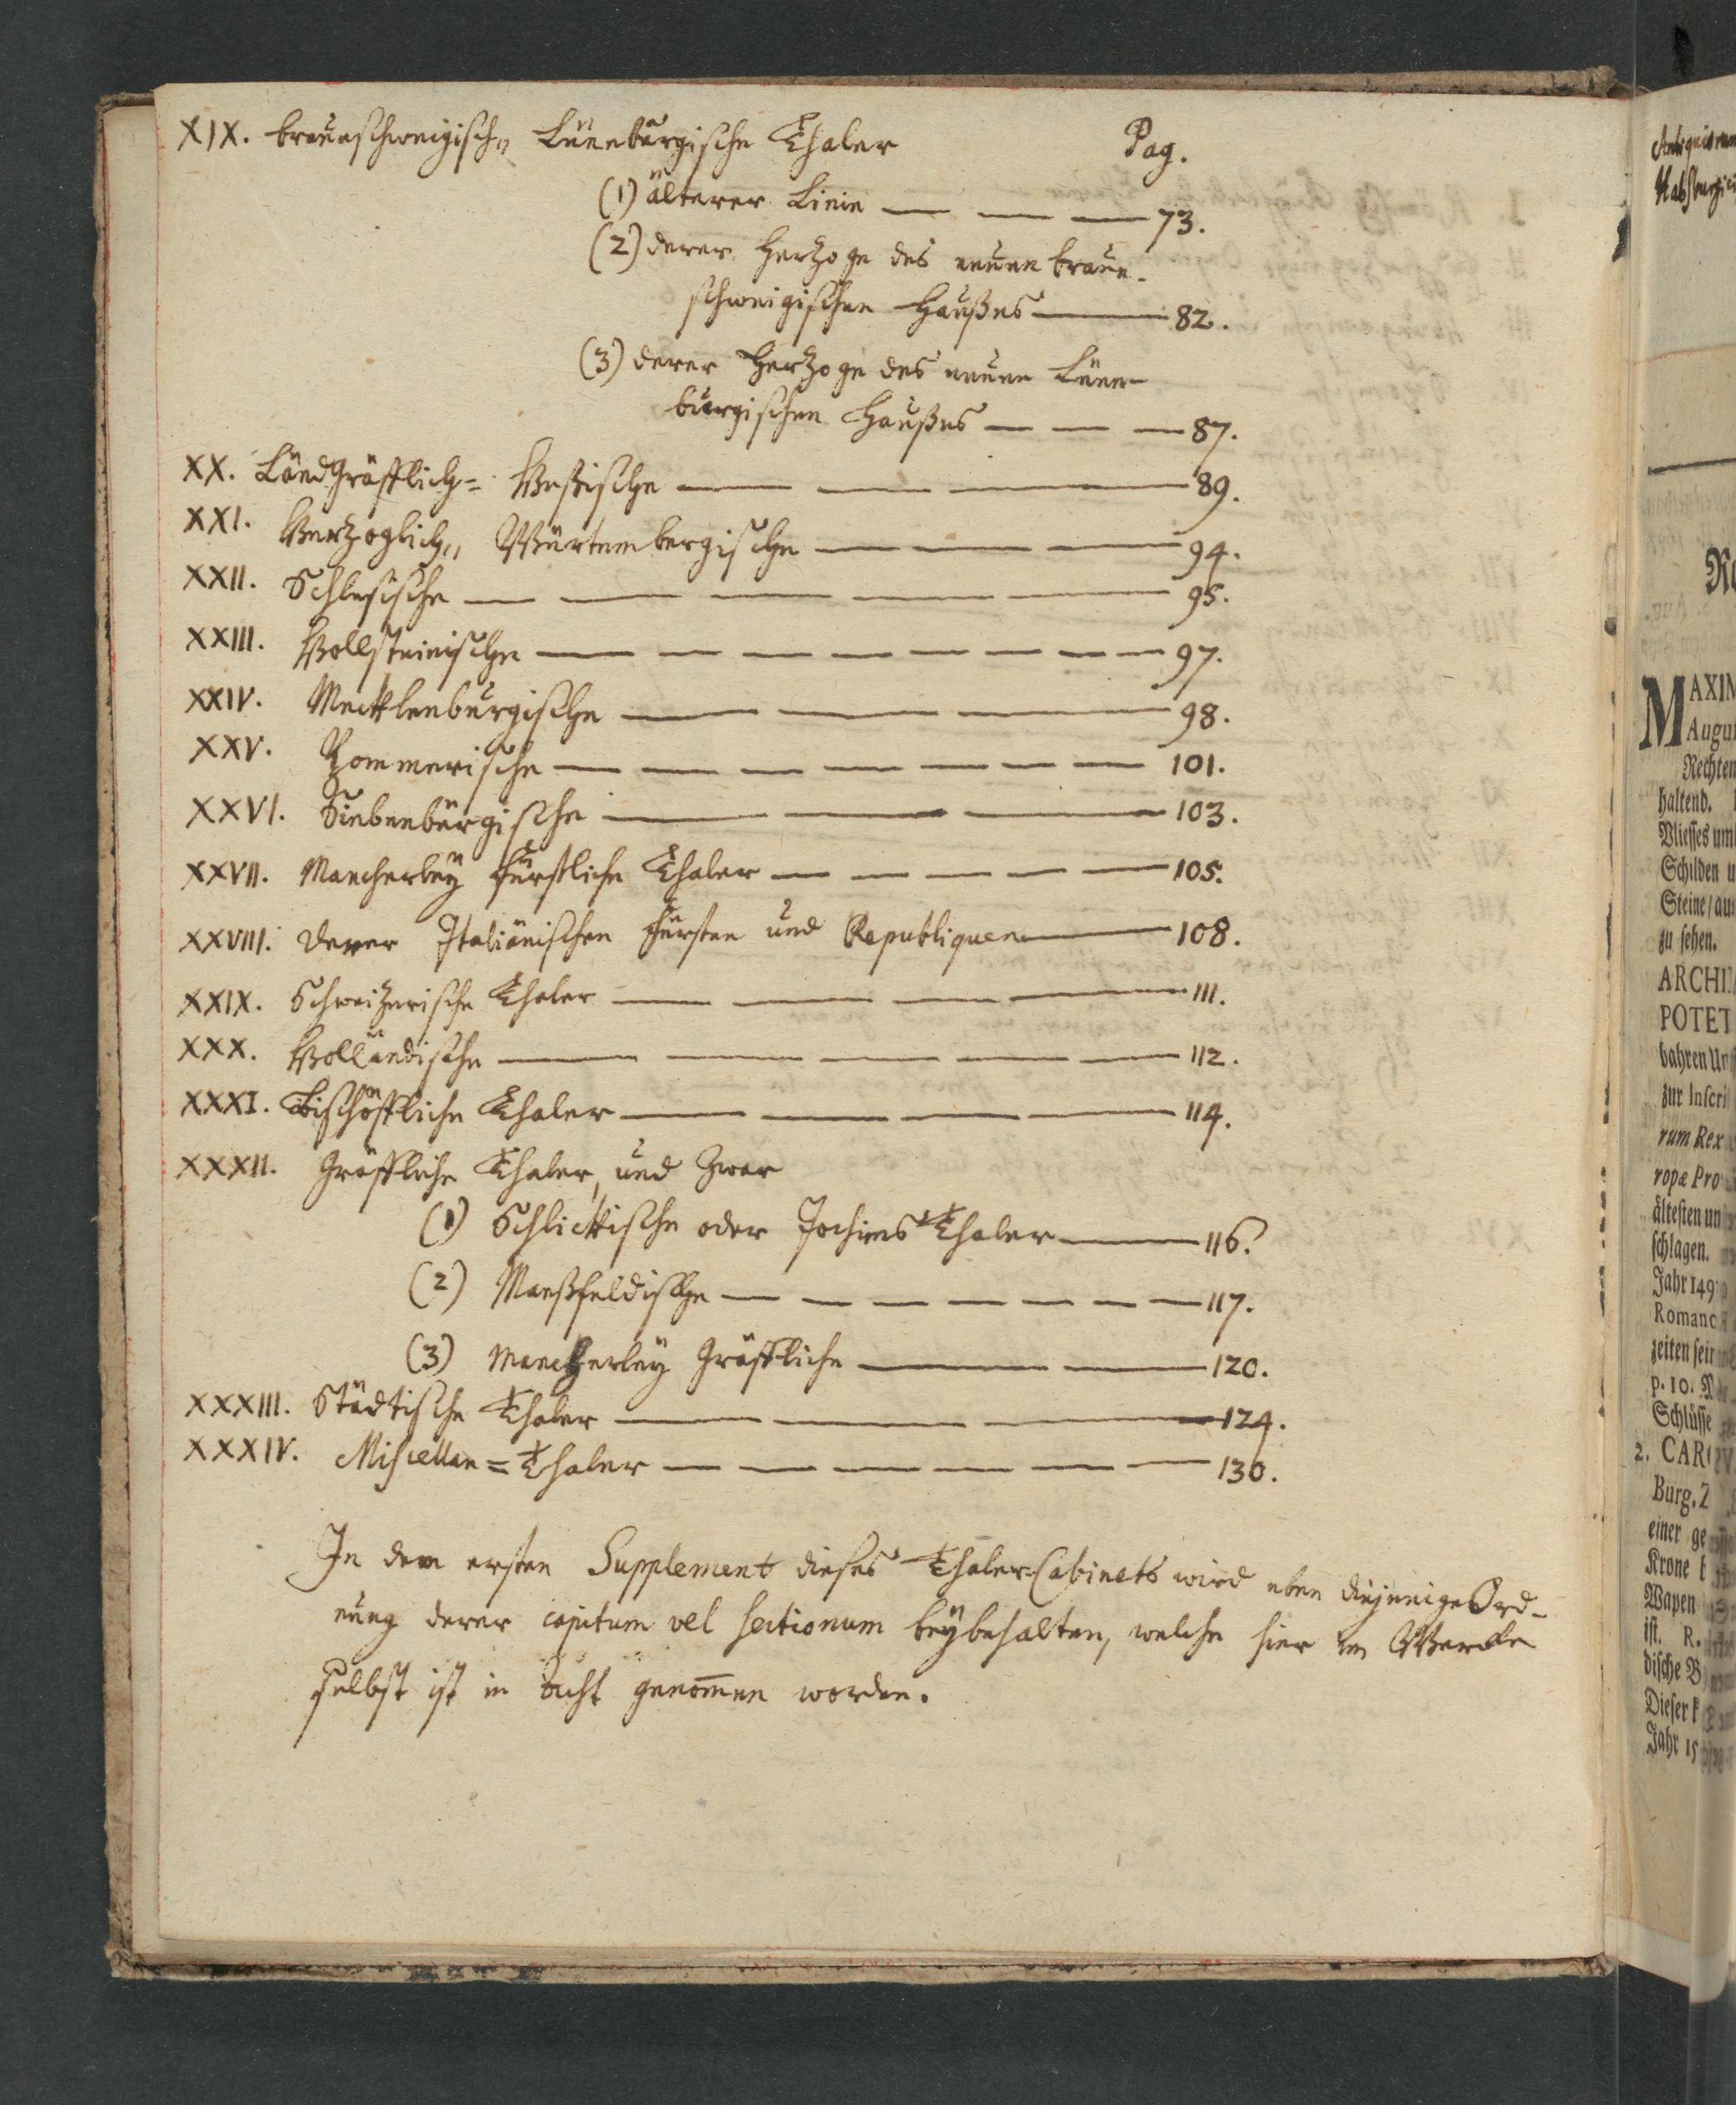 XIX. braunschweigisch„ Lüneburgische Thaler Pag.
(1) älterer Linie — — — 73.
(2) derer Hertzoge des neuen braun-
schweigischen Haußes — 82.
(3) derer Hertzoge des neuen Lüne-
burgischen Haußes — — — 87.
XX. Landgräfflich= Heßische — — — 89.
XXI. Hertzoglich„ Würtembergische — — — 94.
XXII. Schlesische — — — — — 95.
XXIII. Hollsteinische — — — — — — — 97.
XXIV. Mecklenburgische — — — 98.
XXV. Pommerische — — — — — — 101.
XXVI. Siebenbürgische — — — 103.
XXVII. Mancherley Fürstliche Thaler — — — — 105.
XXVIII. Derer Italiänischen Fürsten und Republiquen — 108.
XXIX. Schweitzerische Thaler — — — — 111.
XXX. Holländische — — — — — 112.
XXXI. Bischöffliche Thaler — — — — 114.
XXXII. Gräffliche Thaler, und zwar
(1) Schlickische oder Jochims Thaler — 116.
(2) Manßfeldische — — — — — — 117.
(3) Mancherley Gräffliche — — 120.
XXXIII. Städtische Thaler — — — 124.
XXXIV. Miscellan=Thaler — — — — — — 130.
In dem ersten Supplement dieses Thaler-Cabinets wird eben diejenige Ord-
nung derer capitum vel sectionum beybehalten, welche hier im Wercke
selbst ist in acht genom̅en worden.
MAXIM
Augu
Rechten
haltend.
Vliesses um
Schilden u
Steine / au
zu sehen.
ARCHI
POTET
bahren Un
zur Inscri
rum Rex
ropæ Pro
ältesten un
schlagen.
Jahr 149
Romano
zeiten sein
p. 10.
Schlüsse
2. CAR
Burg.
einer ge
Krone
Wapen
ist. R.
dische B
Dieser
Jahr 15